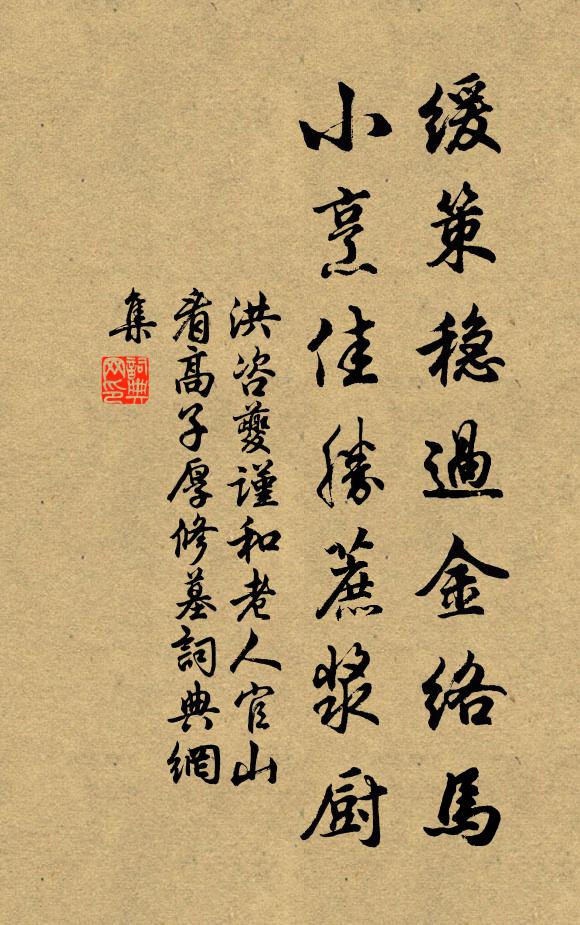 緩策穩過金絡馬
小烹佳勝蔗漿廚
洪咨夔謹和老人官山
看高子厚修墓詞典網
集
詞典
网印